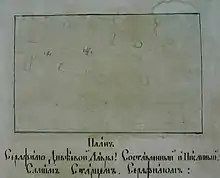 Планъ
Серафимо Дивѣевой Лавры: Составленный и Писанный
Самимъ Старцемъ Серафимомъ: